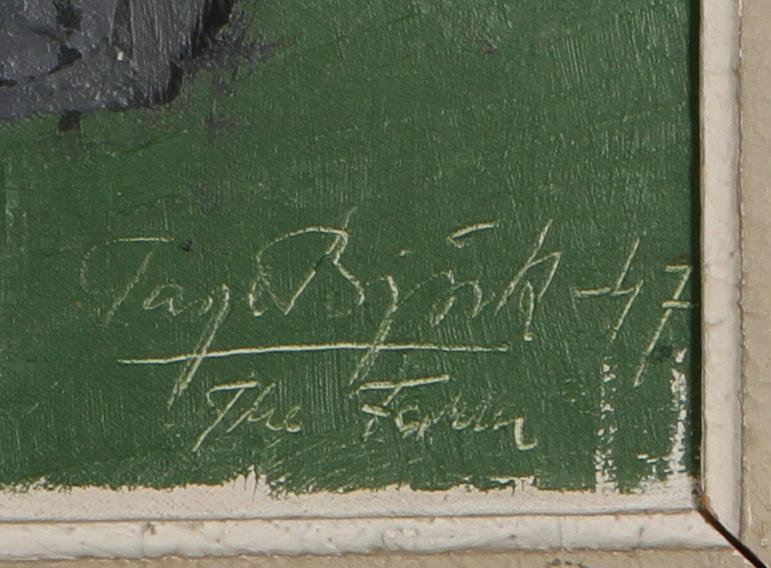 Tage Björk -47
The Farm